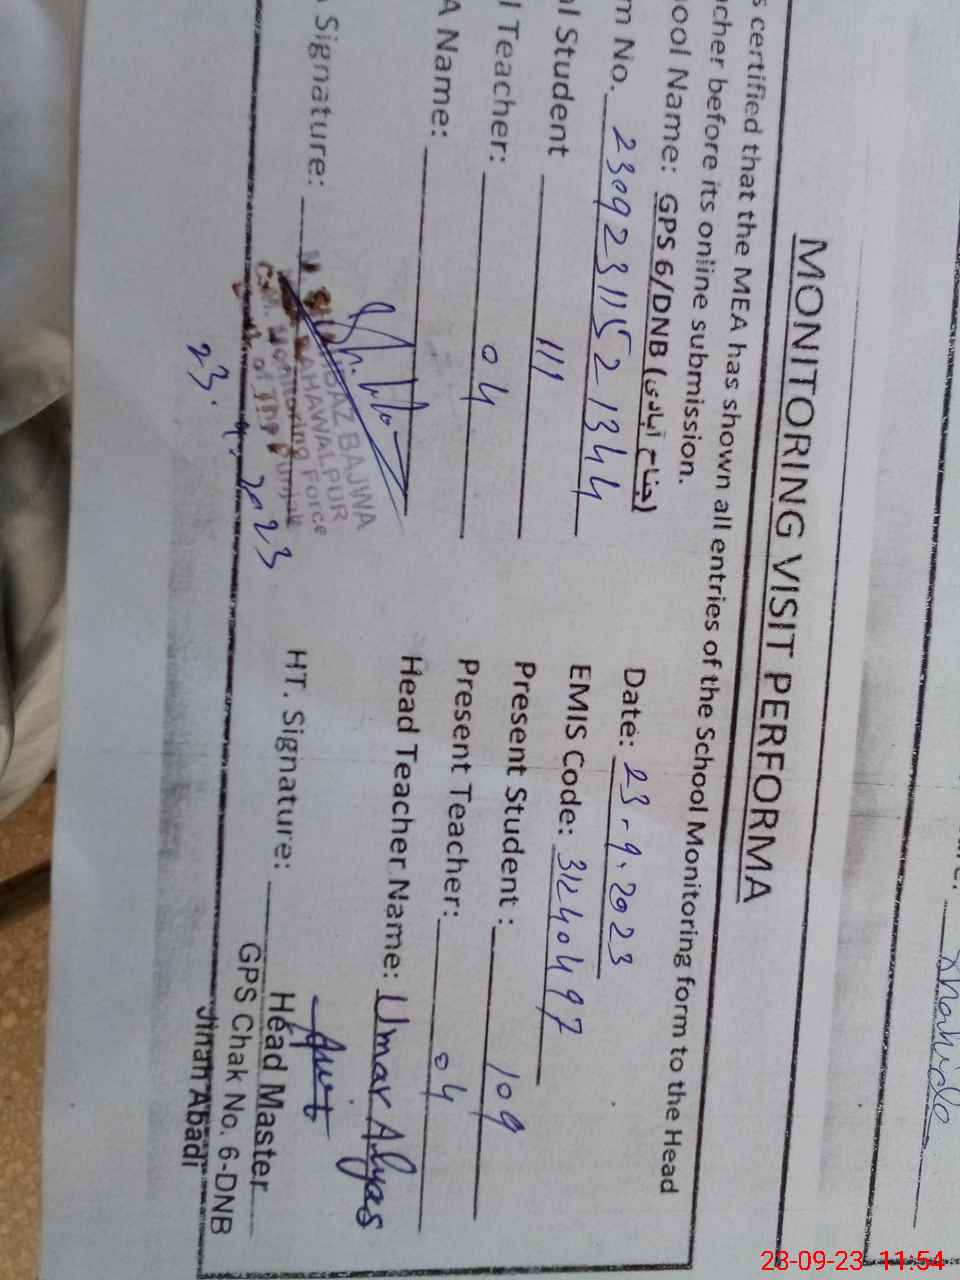 MONITORING VISIT PERFORMA
s certified that the MEA has shown all entries of the School Monitoring form to the Head
cher before its online submission.
ool Name: GPS 6/DNB (جناح آبادی)
Date: 23-9-2023
m No. 23092311521344
EMIS Code: 31240497
al Student 111
Present Student: 109
l Teacher: 04
Present Teacher: 04
A Name:
Head Teacher Name: Umar Alyas
Signature:
BAJWA
BAHAWALPUR
Monitoring Force
Punjab
23.9.2023
HT. Signature:
Head Master
GPS Chak No. 6-DNB
Jinah Abadi
23-09-23 11:54